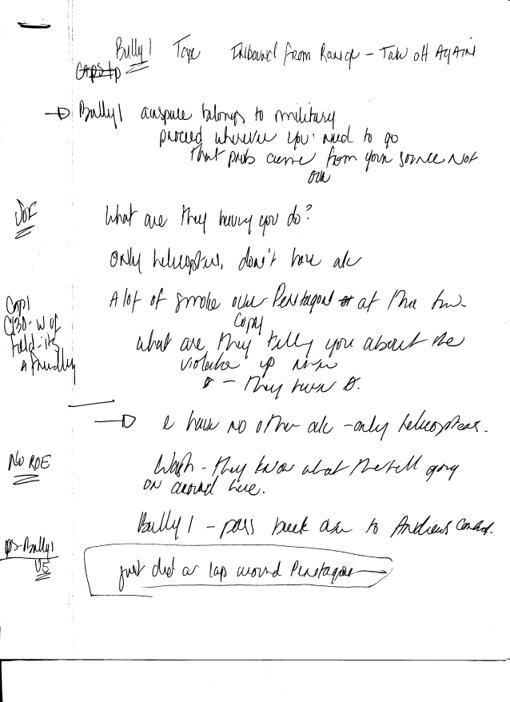 Bully 1 Tape Inbound from Range - Take off AGAIN
Bully 1 airspace belongs to military
proceed wherever you need to go
that prob came from your source not
our
What are they having you do?
Only helicopters, don't have a/c
A lot of smoke over Pentagon at this time
Copy
what are they telling you about the
up
- they have
have no other a/c - only helicopters.
NO ROE
Wash - they know what the hell going
on around here.
Bully 1 - pass back over to Andrews
Cap 1
C130 - W of
field - its
a friendly
Bully 1
just did a lap around Pentagon